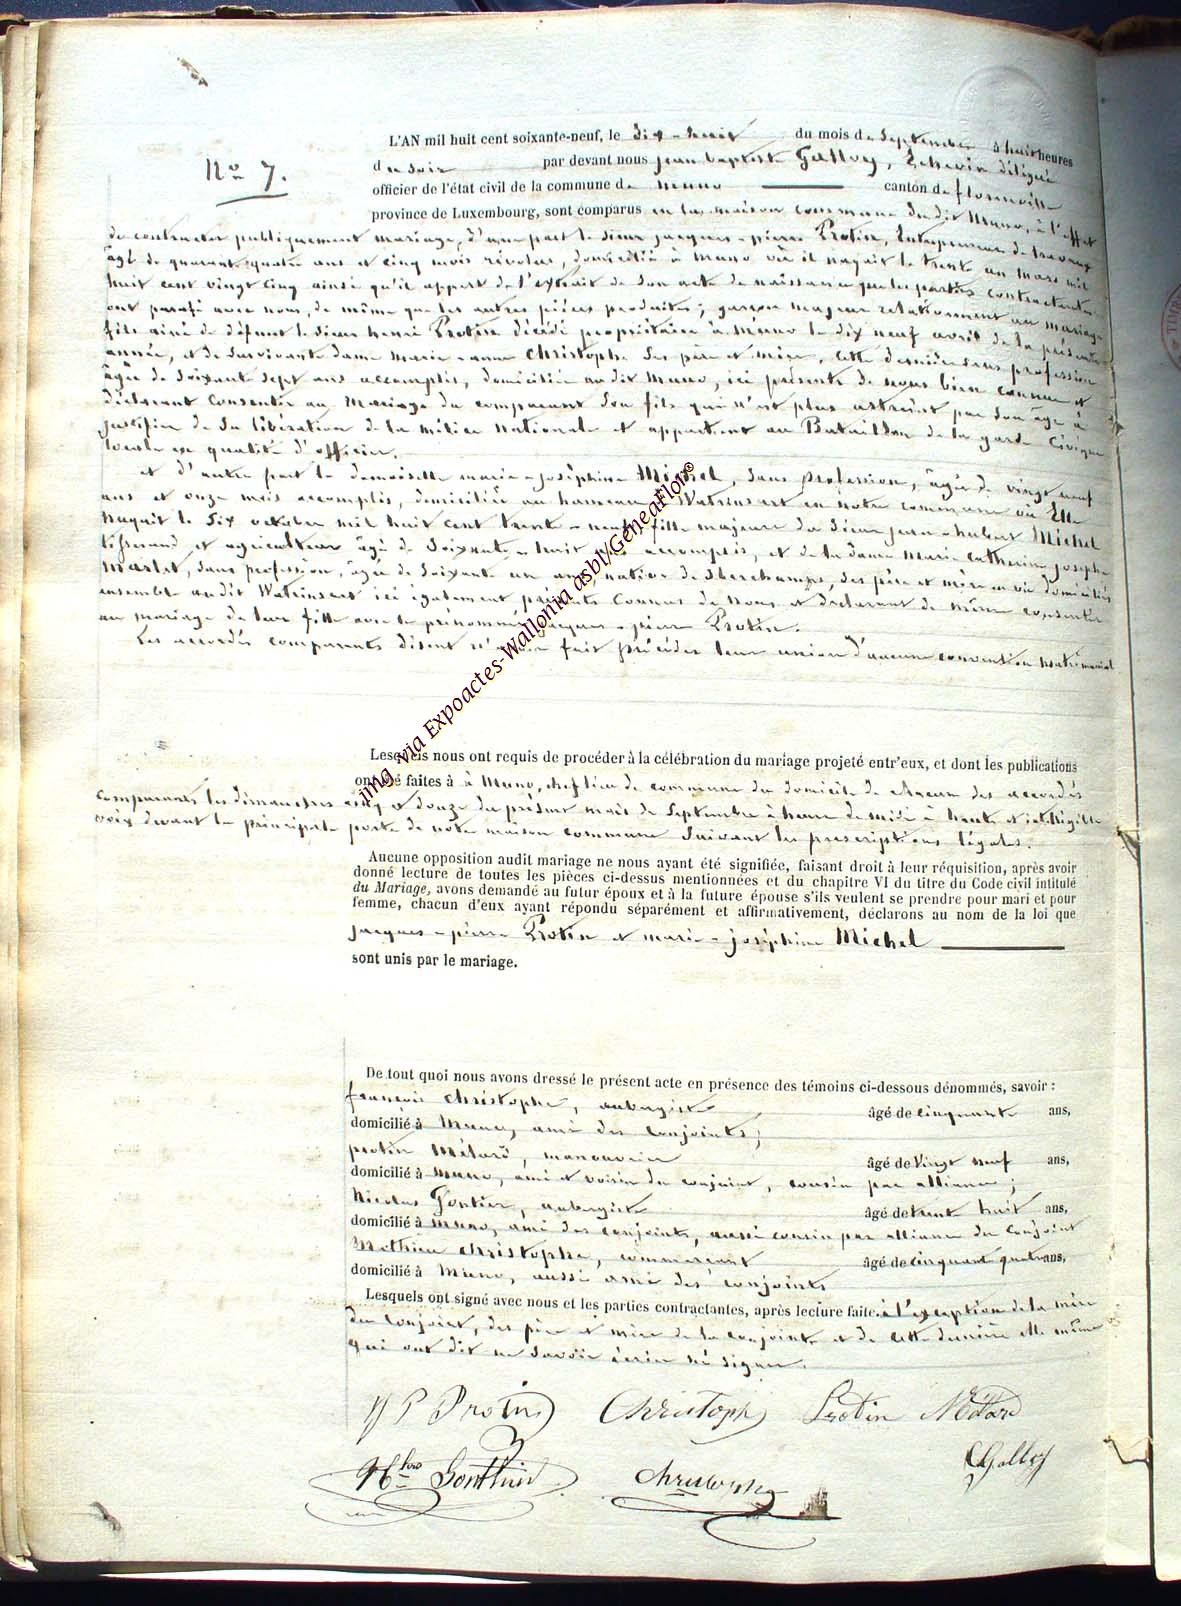 N° 7.
L'AN mil huit cent soixante-neuf, le dix-huit du mois de Septembre à huit heures
du soir par devant nous jean baptiste Galloy, Echevin délégué
officier de l'état civil de la commune de muno canton de florenville
province de Luxembourg, sont comparus en la maison commune du dit Muno, à l'effet
de contracter publiquement mariage, d'une part le sieur jacques-pierre Protin, Entrepreneur de travaux
âgé de quarante quatre ans et cinq mois révolus, domicilié à muno où il naquit le trente un mars mil
huit cent vingt cinq ainsi qu'il appert de l'extrait de son acte de naissance que les parties contractantes
ont parafé avec nous, de même que les autres pièces produites; garçon majeur relativement au mariage
fils ainé de défunt le sieur henri Protin décédé propriétaire à Muno le dix neuf avril de la présente
année, et de survivante dame marie-anne Christophe ses père et mère, cette dernière sans profession
âgée de soixante sept ans accomplis, domiciliée au dit muno, ici présente de nous bien connue et
déclarant consentir au mariage du comparant son fils qui n'est plus astreint par son âge à
justifier de sa libération de la milice nationale et appartient au Bataillon de la garde Civique
locale en qualité d'officier.
et d'autre part la demoiselle marie-joséphine Michel, sans profession, âgée de vingt neuf
ans et onze mois accomplis, domiciliée au hameau Watrinsart en notre commune où Elle
naquit le six octobre mil huit cent trente-neuf, fille majeure du sieur jean-hubert Michel
tisserand et agriculteur âgé de soixante-huit ans accomplis, et de la dame marie catherine josephe
Marlet, sans profession, âgée de soixante un ans native de Sberchamps, ses père et mère en vie domiciliés
ensemble au dit Watrinsart ici également présents connus de nous et déclarant de même consentir
au mariage de leur fille avec le prénommé jacques-pierre Protin.
Les accordés comparants disent n'avoir fait précéder leur union d'aucune convention matrimonial
Lesquels nous ont requis de procéder à la célébration du mariage projeté entr'eux, et dont les publications
ont été faites à à Muno, chef lieu de commune du domicile de chacun des accordés
comparants les dimanches cinq et douze du présent mois de Septembre à heure de midi à haute et intelligible
voix devant la principale porte de notre maison commune suivant les prescriptions légales.
Aucune opposition audit mariage ne nous ayant été signifiée, faisant droit à leur réquisition, après avoir
donné lecture de toutes les pièces ci-dessus mentionnées et du chapitre VI du titre du Code civil intitulé
du Mariage, avons demandé au futur époux et à la future épouse s'ils veulent se prendre pour mari et pour
femme, chacun d'eux ayant répondu séparément et affirmativement, déclarons au nom de la loi que
jacques-pierre Protin et marie-joséphine Michel
sont unis par le mariage.
De tout quoi nous avons dressé le présent acte en présence des témoins ci-dessous dénommés, savoir :
françois christophe, aubergiste âgé de cinquante ans,
domicilié à Muno, ami des conjoints;
protin Médard, manouvrier âgé de Vingt neuf ans,
domicilié à muno, ami et voisin du conjoint, cousin par alliance;
Nicolas Gontier, aubergiste âgé de trente huit ans,
domicilié à muno, ami des conjoints, aussi cousin par alliance du conjoint
Mathieu christophe, commerçant âgé de cinquante quatre ans,
domicilié à Muno, aussi ami des conjoints
Lesquels ont signé avec nous et les parties contractantes, après lecture faite. à l'exception de la mère
du conjoint, des père et mère de la conjointe et de cette dernière elle même
qui ont dit ne savoir écrire ni signer.
JP Protin Christophe Protin Médard
N. Gonthier christophe Galloy
img via Expoactes-Wallonia asbl/GeneaFlor©